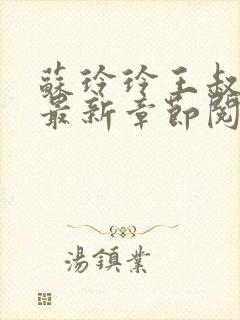 蘇玲玲王叔
最新章節閱
湯鎮業